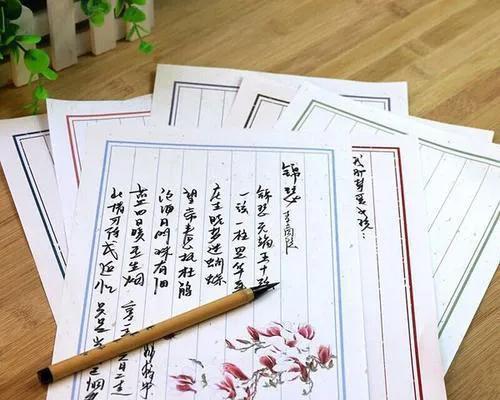 锦瑟 李商隐
锦瑟无端五十弦
一弦一柱思华年
庄生晓梦迷蝴蝶
望帝春心托杜鹃
沧海月明珠有泪
蓝田日暖玉生烟
此情可待成追忆 只是当